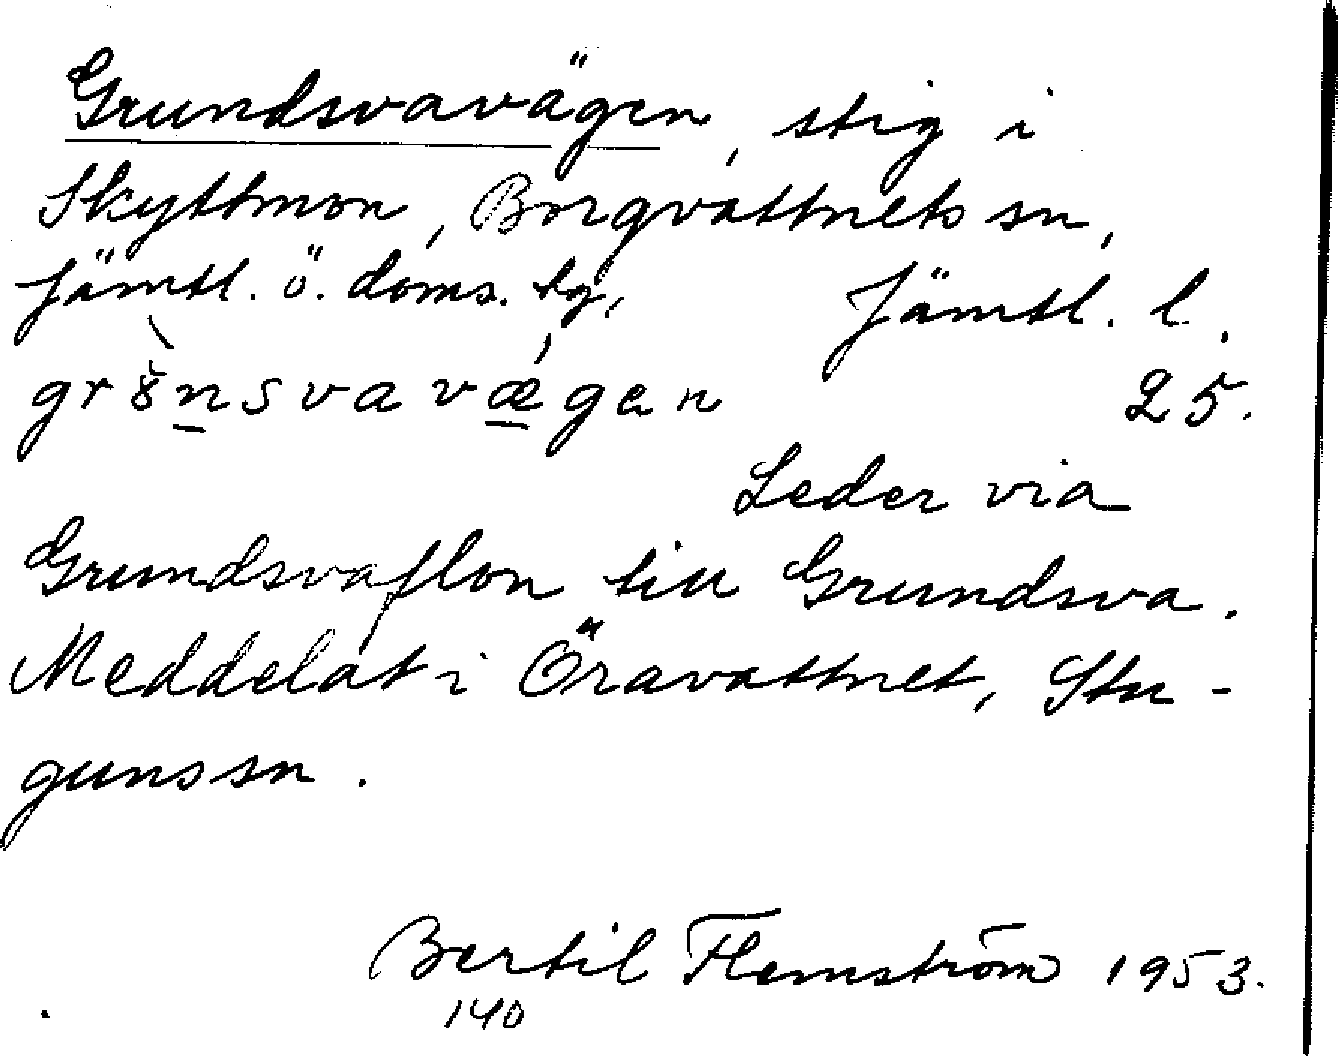 Grundsvavägen, stig i
Skyttmon, Borgvattnets sn,
Jämtl. ö. doms. tg, Jämtl. l.
grö̀nsvavǽgen 25.
Leder via
Grundsvaflon till Grundsva.
Meddelat i Öravattnet, Stu-
guns sn.
Bertil Flemström 1953.
140